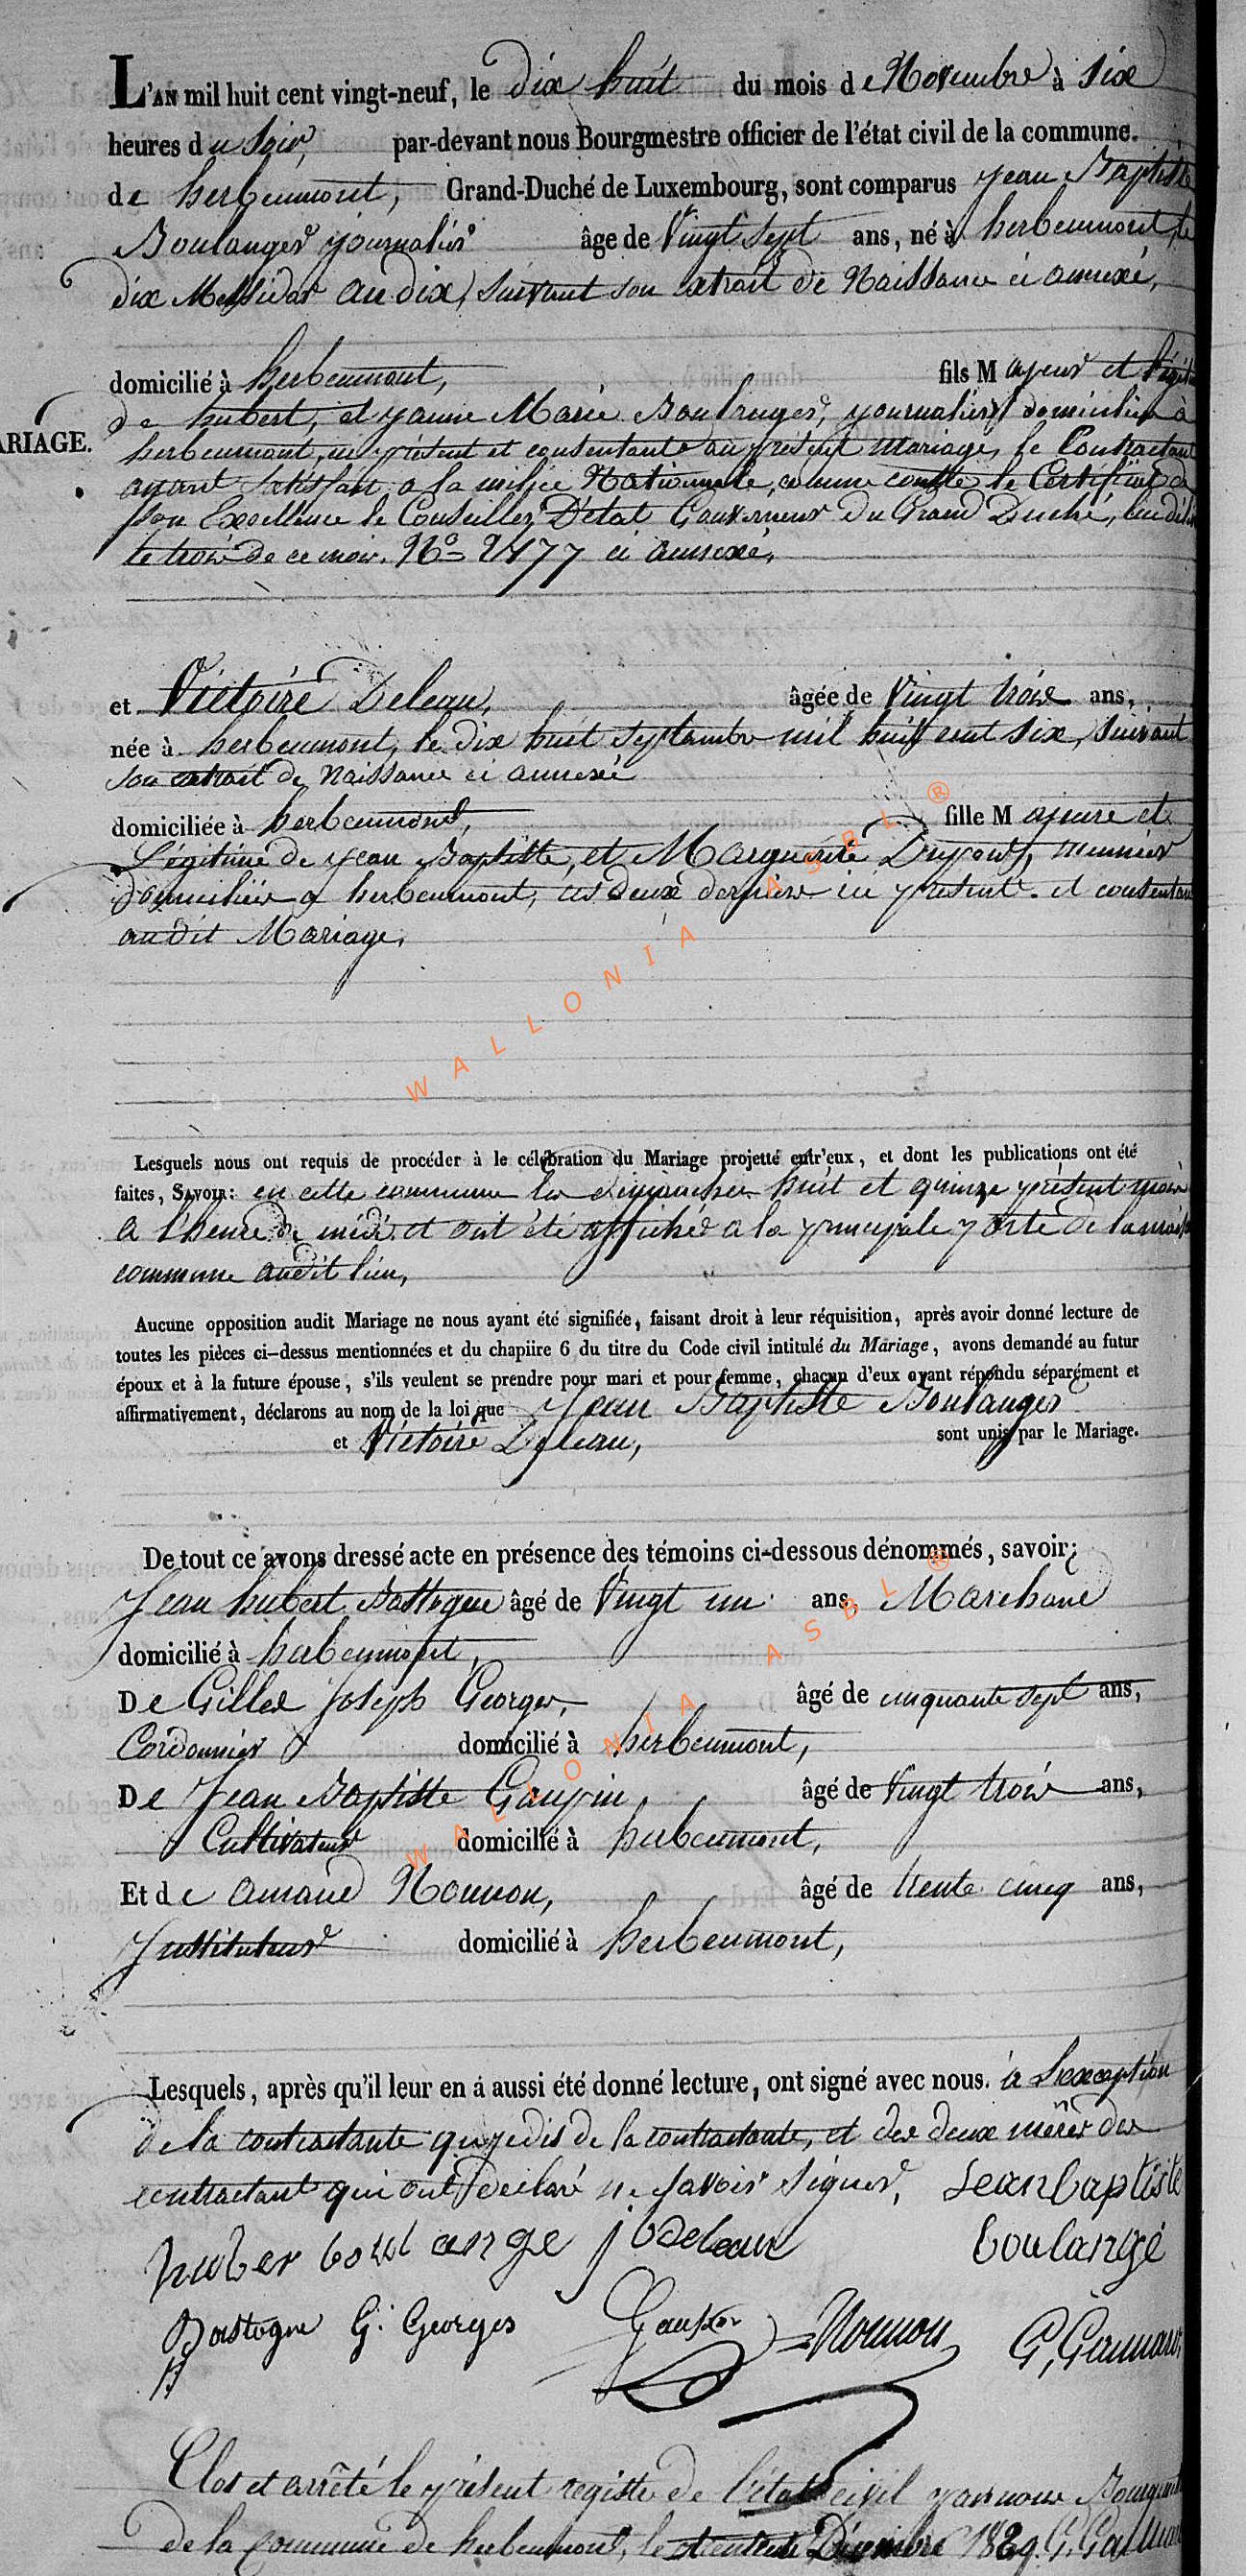 L'AN mil huit cent vingt-neuf, le dix huit du mois de Novembre à six
heures du soir, par-devant nous Bourgmestre officier de l'état civil de la commune.
de herbeumont, Grand-Duché de Luxembourg, sont comparus Jean Baptiste
Boulanger journalier âge de Vingt sept ans, né à herbeumont, le
dix Messidor an dix, suivant son extrait de Naissance ci annexé,
domicilié à herbeumont, fils Majeur et légit
de hubert, et Jeanne Marie Boulanger, journaliers domiciliés à
ARIAGE.
herbeumont, ici présent et consentant au présent mariage, le Contractant
ayant satisfait a la milice Nationale, comme conste le Certificat de
son Excellence le Conseiller D'état Gouverneur du Grand Duché, lui déli
le trois de ce mois. No 2477 ci annexé,
et Victoire Deleau, âgée de Vingt trois ans,
née à herbeumont, le dix huit Septembre mil huit cent six, suivant
son extrait de Naissance ci annexé
domiciliée à herbeumont, fille Majeure et
Légitime de Jean Baptiste, et Marguerite Dupont, meunier
domiciliés a herbeumont, ces deux derniers ici présent et consentant
audit Mariage,
Lesquels nous ont requis de procéder à le célébration du Mariage projetté entr'eux, et dont les publications ont été
faites, SAVOIR: en cette commune les dimanches huit et quinze présent mois
a l'heure de midi, et ont été affichés a la principale porte de la maison
commune audit lieu,
Aucune opposition audit Mariage ne nous ayant été signifiée, faisant droit à leur réquisition, après avoir donné lecture de
toutes les pièces ci-dessus mentionnées et du chapiire 6 du titre du Code civil intitulé du Mariage, avons demandé au futur
époux et à la future épouse, s'ils veulent se prendre pour mari et pour femme, chacun d'eux ayant répondu séparément et
affirmativement, déclarons au nom de la loi que Jean Baptiste Boulanger
et Victoire Deleau, sont unis par le Mariage.
De tout ce avons dressé acte en présence des témoins ci-dessous dénommés, savoir:
Jean hubert Bastogne âgé de Vingt un ans, Marchand
domicilié à herbeumont,
De Gilles Joseph Georges, âgé de cinquante sept ans,
Cordonnier domicilié à herbeumont,
De Jean Baptiste Gaupin, âgé de Vingt trois ans,
Cultivateur domicilié à herbeumont,
Et de amand Noumon, âgé de trente cinq ans,
Instituteur domicilié à herbeumont,
Lesquels, après qu'il leur en a aussi été donné lecture, ont signé avec nous. à L'exception
de la contractante que je dis de la contractante, et des deux mères des
contractant qui ont déclaré ne savoir signer, Jean baptiste
huber boulange jb deleau boulangé
Bastogne G. Georges Noumon
Clos et arrêté le présent registre de l'état civil par nous
de la commune de herbeumont, le Décembre 1829.
WALLONIA ASBL ®
WALLONIA ASBL ®